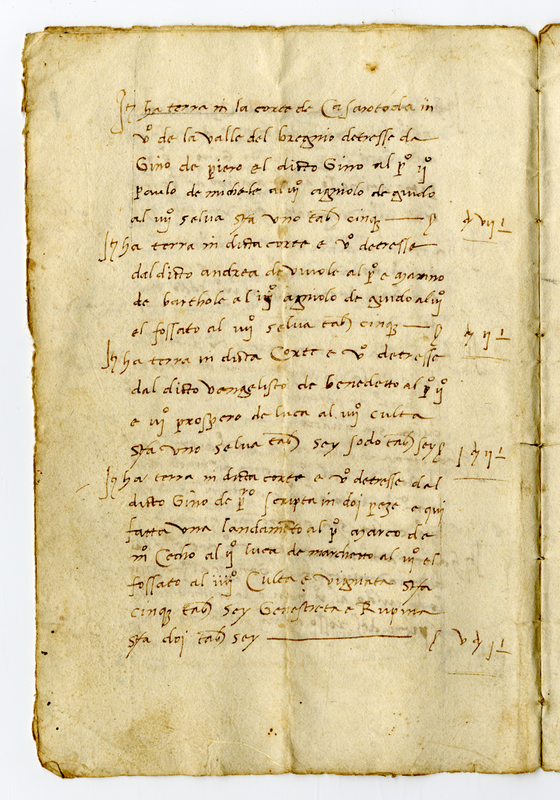 It ha terra in la corte de Casarotoda in
vo de la valle del bregnio detresse da
Gino de piero el ditto Gino al po ijo
paulo de michele al iijo agnolo de guido
al iiijo selva sta uno tab cinque
It ha terra in ditta corte e vo detresse
dal ditto andrea de vivole al po e marino
de barthole al ijo agnolo de guido al iijo
el fossato al iiijo selva tab cinque
It ha terra in ditta Corte e vo detresse
dal ditto vangelisto de benedetto al po ijo
e iijo prospero de luca al iiijo culta
sta uno selva tab sey sodo tab sey
It ha terra in ditta corte e vo detresse dal
ditto Gino de piero scripta in doi peze e qui
fatta una landamento al po marco de
mo Cecho al ijo luca de marchetto al iijo el
fossato al iiijo Culta e vignata sta
cinque tab sey Gerestreta e Rupina
sta doi tab sey